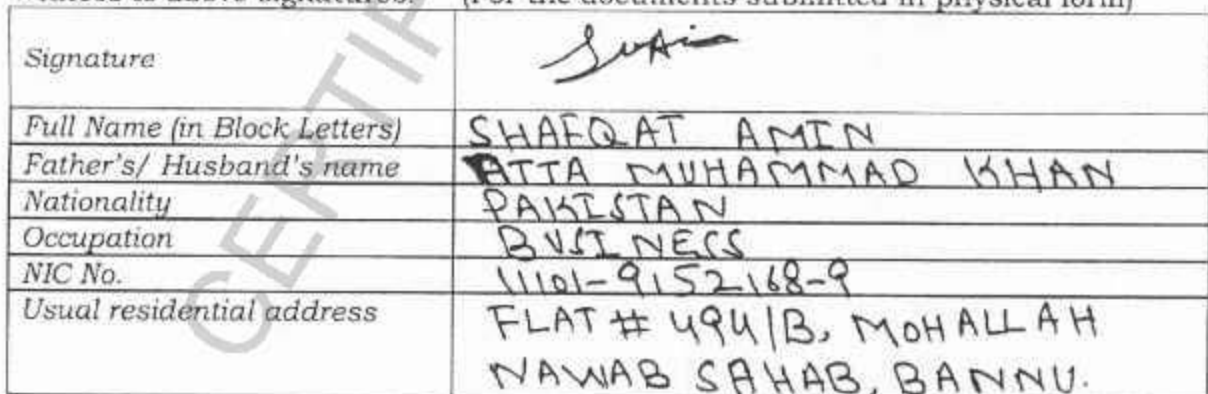 (For the documents submitted in physical form)
Signature
Full Name (in Block Letters) SHAFQAT AMIN
Father's/ Husband's name ATTA MUHAMMAD KHAN
Nationality PAKISTAN
Occupation BUSINESS
NIC No. 11101-9152168-9
Usual residential address FLAT # 494/B, MOHALLAH
NAWAB SAHAB, BANNU.
CERTIF